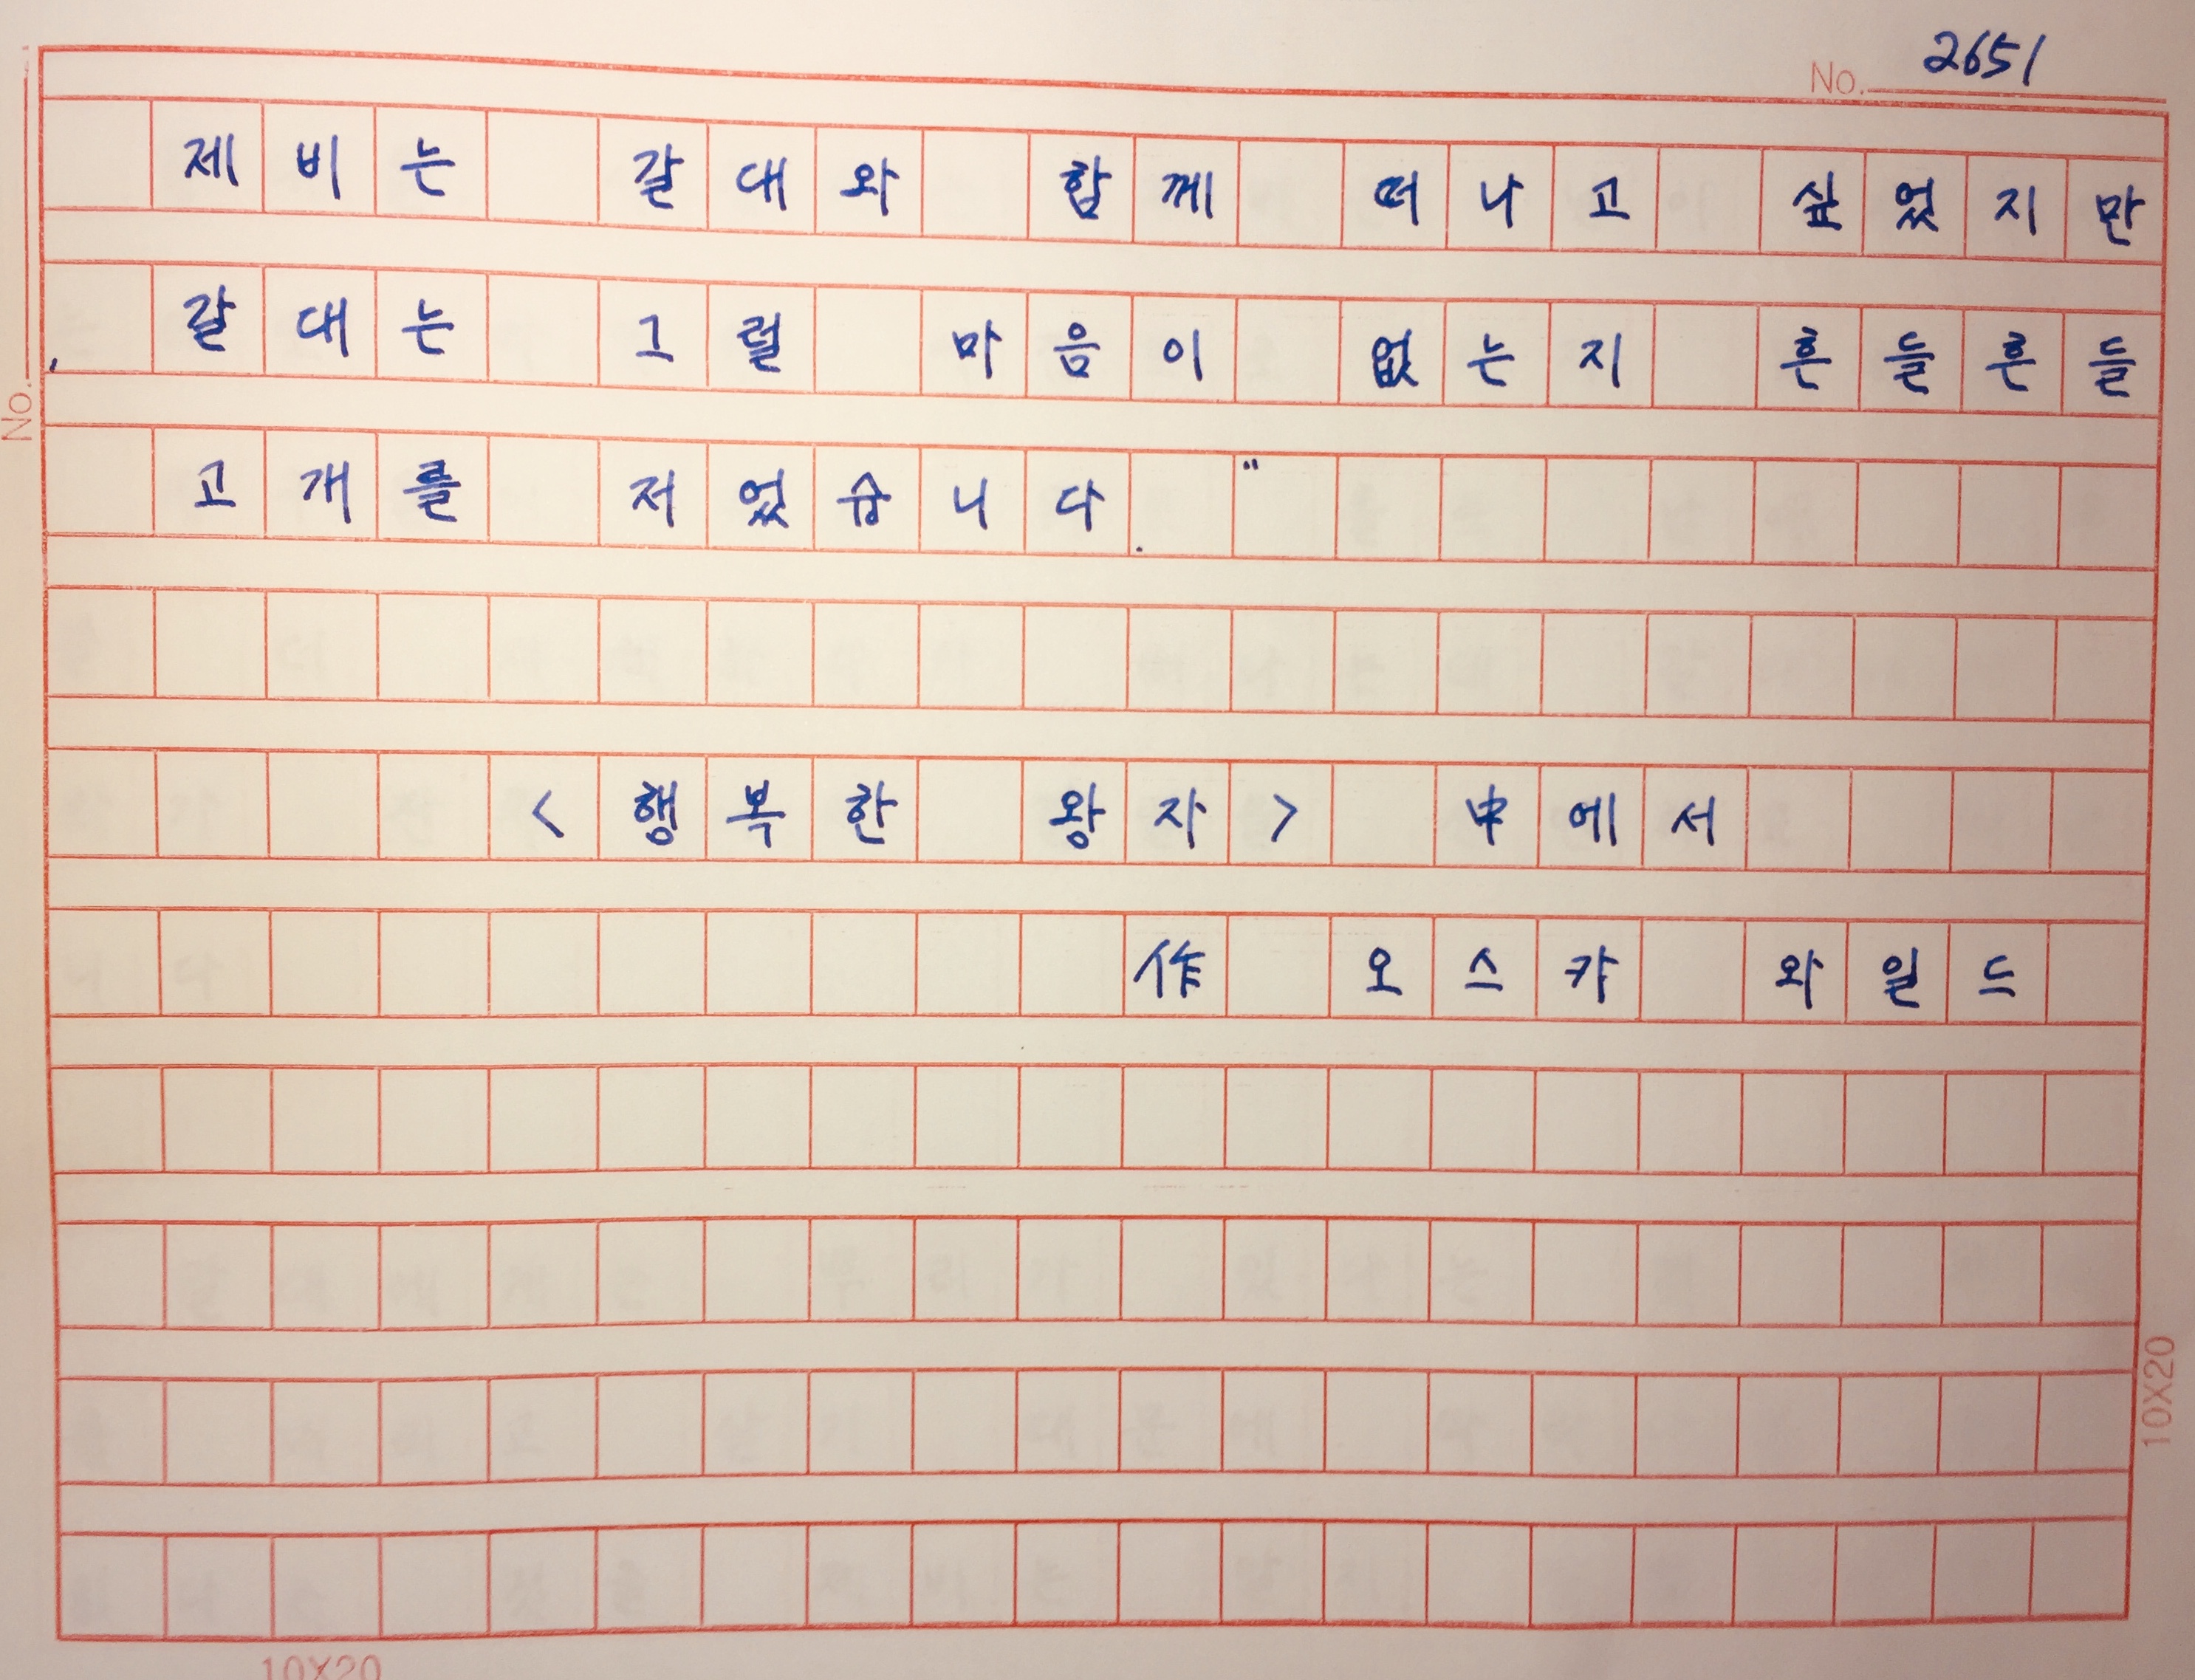 No. 2651
제비는 갈대와 함께 떠나고 싶었지만
, 갈대는 그럴 마음이 없는지 흔들흔들
고개를 저었습니다. "
<행복한 왕자> 中에서
作 오스카 와일드
No.
10X20
10X20